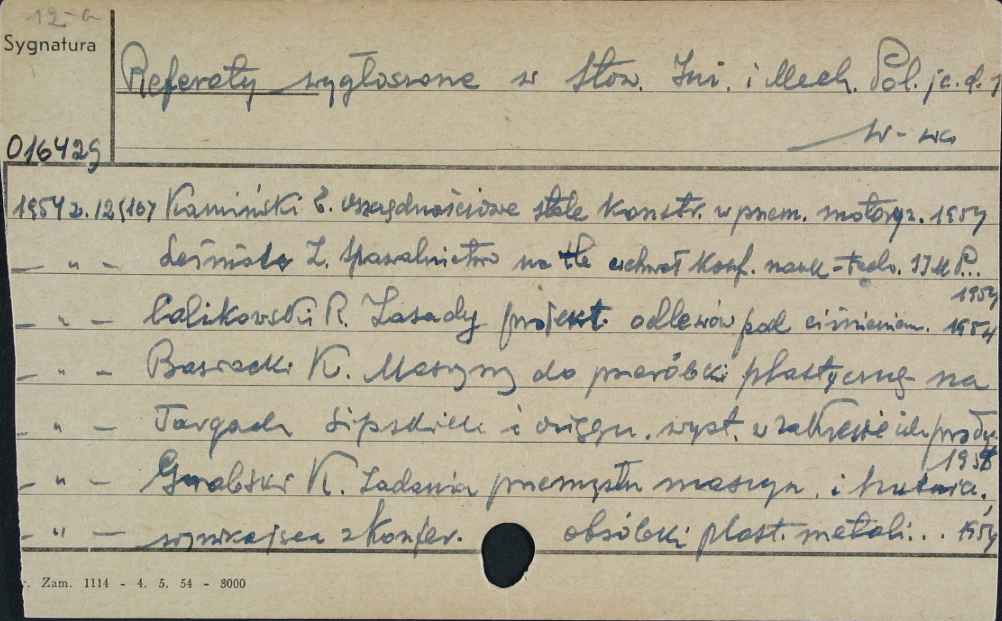 12-a
Sygnatura
Referaty wygłoszone w Stow. Inż. i Mech. Pol.
W-wa
016429
1954 z. 12(16) Kamiński E. oszczędnościowe stale konstr. w przem. motoryz. 1954
— " — Leśniak Z. Spawalnictwo na tle uchwał konf. nauk-techn. SIMP... 1954
— " — Calikowski R. Zasady projekt. odlewów pod ciśnieniem. 1954
— " — K. Maszyny do przeróbki plastycznej na
— " — Targach Lipskich i wyst. w zakresie ich
— " — Grabski K. Zadania przemysłu maszyn. i hutnic. 1954
— " — wynikające z konfer. obróbki plast. metali... 1954
r. Zam. 1114 - 4. 5. 54 - 8000